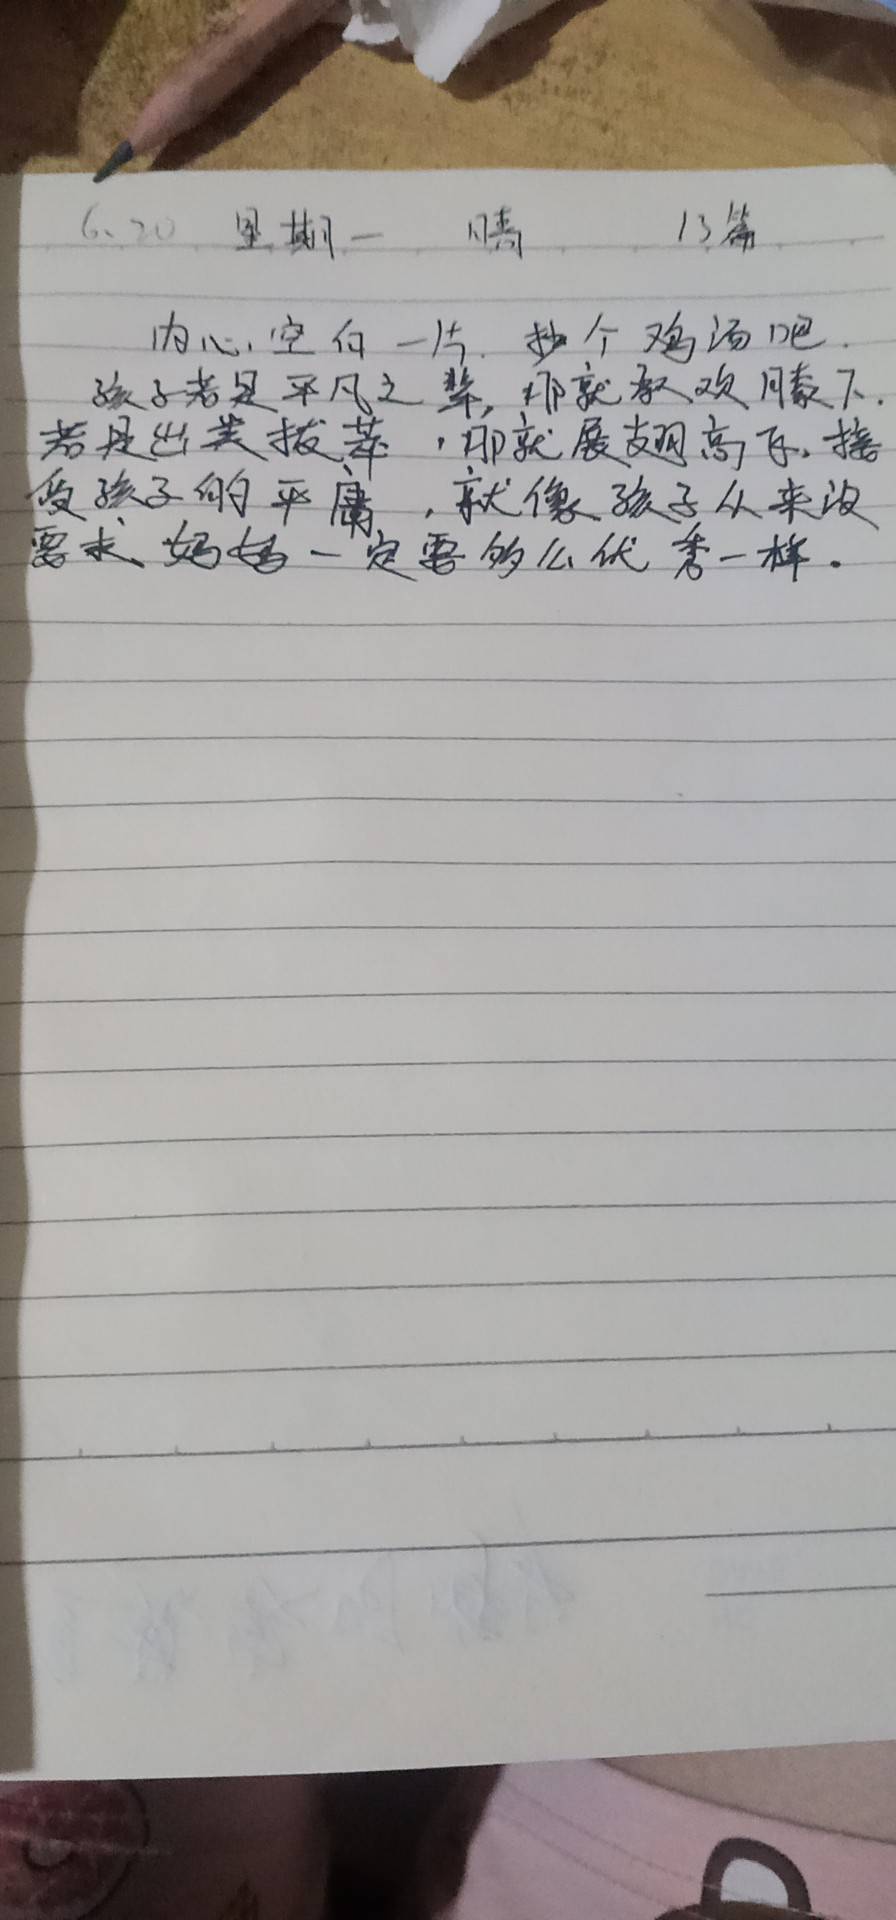 6.20 星期一 晴 13篇
内心空白一片. 抄个鸡汤吧.
孩子若是平凡之辈, 那就承欢膝下.
若是出类拔萃,那就展翅高飞. 接
受孩子的平庸,就像孩子从来没
要求妈妈一定要多么优秀一样.